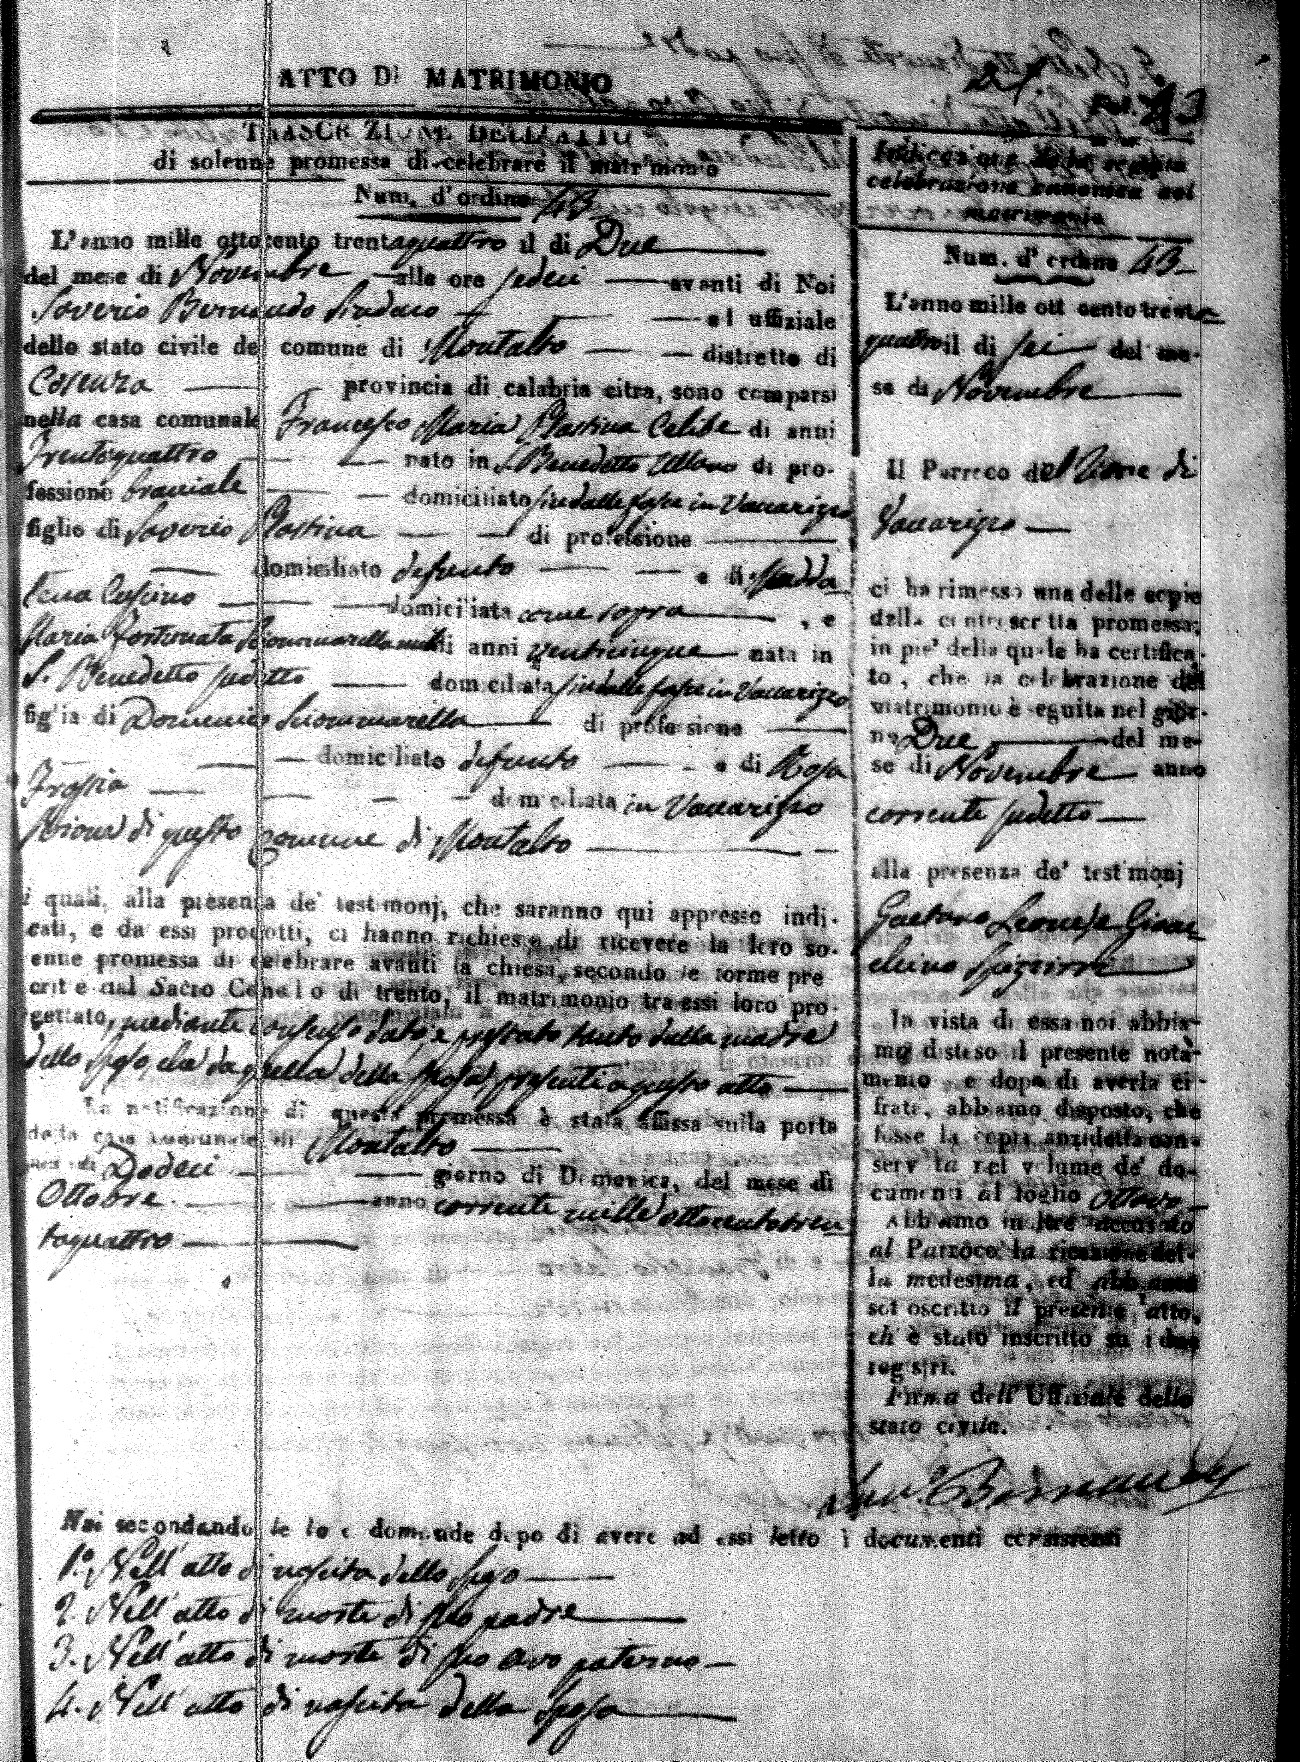 ATTO DI MATRIMONIO
TRASCRIZIONE DELL'ATTO
di solenne promessa di celebrare il matrimonio
Num. d'ordine 43
L'anno mille ottocento trentaquattro il di Due
del mese di Novembre alle ore sedeci avanti di Noi
Saverio Bernaudo Sindaco ed uffiziale
dello stato civile del comune di Montalto distretto di
Cosenza provincia di calabria citra, sono comparsi
nella casa comunale Francesco Maria Plastina Celibe di anni
Trentaquattro nato in S. Benedetto Ullano di pro-
fessione bracciale domiciliato sin dalle fasce in Vaccarizzo
figlio di Saverio Plastina di professione
domiciliato defunto e di Madda
lena domiciliata come sopra, e
Maria Fortunata di anni venticinque nata in
S. Benedetto sudetto domiciliata sin dalle fasce in Vaccarizzo
figlia di Domenico di professione
domiciliato defunto e di Rosa
domiciliata in Vaccarizzo
Rione di questo Comune di Montalto
i quali, alla presenza de' testimonj, che saranno qui appresso indi-
cati, e da essi prodotti, ci hanno richiesto di ricevere la loro so-
enne promessa di celebrare avanti la chiesa, secondo le forme pre
crite dal Sacro Concilio di trento, il matrimonio tra essi loro pro-
gettato, mediante consenso dato, e prestato tanto dalla madre
dello sposo, che da quella della sposa presenti a questo atto
La notificazione di questa promessa è stata affissa sulla porta
della casa comunale di Montalto
nel di Dodeci giorno di Domenica, del mese di
Ottobre anno corrente mille ottocentotren
taquattro
Noi secondando le loro domande dopo di avere ad essi letto i documenti consistenti
1.° Nell'atto di nascita dello sposo
2. Nell'atto di morte di suo padre
3. Nell'atto di morte di suo avo paterno
4. Nell'atto di nascita della sposa
Fol. 43
Indicazione della seguita
celebrazione canonica del
matrimonio
Num. d'ordine 43
L'anno mille ottocento trenta
quattro il di sei del me-
se di Novembre
Il Parroco del Rione di
Vaccarizzo
ci ha rimesso una delle copie
della controscritta promessa;
in pie' della quale ha certifica-
to, che la celebrazione del
matrimonio è seguita nel gior-
no Due del me-
se di Novembre anno
corrente sudetto
alla presenza de' testimonj
Gaetano Leonese Gioac
chino
In vista di essa noi abbia-
mo disteso il presente nota-
mento, e dopo di averla ci-
frata, abbiamo disposto, che
fosse la copia anzidetta con-
servata nel volume de' do-
cumenti al foglio ottavo
Abbiamo inoltre accusato
al Parroco la ricezione del-
la medesima, ed abbiamo
sottoscritto il presente atto,
ch' è stato inscritto su i due
registri.
Firma dell'Uffiziale dello
stato civile.
Sav.° Bernaudo